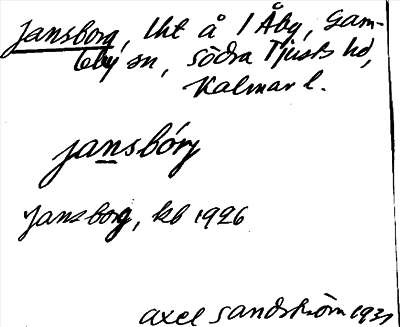 Jansborg, lht å 1 Åby, Gam-
leby sn, Södra Tjusts hd,
Kalmar l.
jansbórg
Jansborg, kb 1926
Axel Sandström 1931